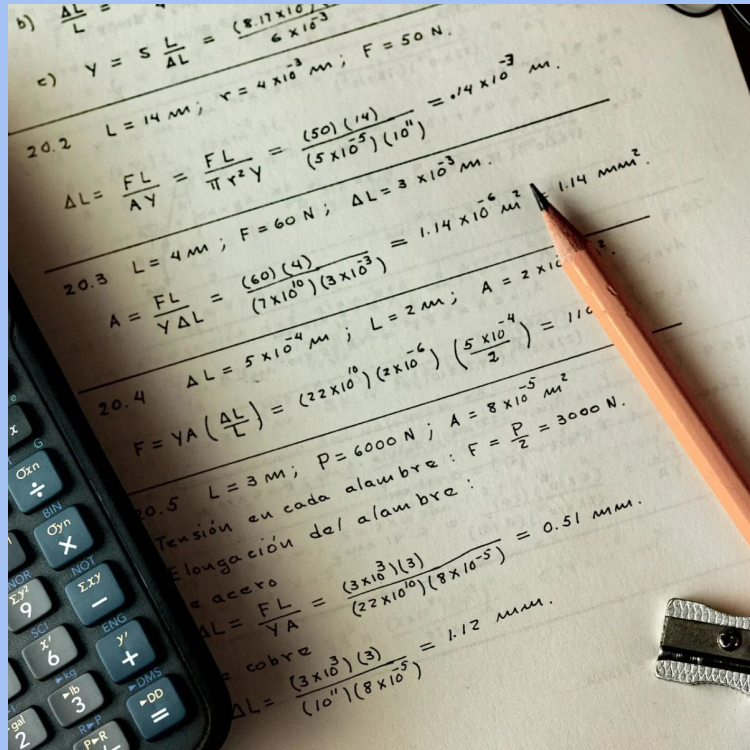 b) ΔL/L =
c) Y = 5 L/ΔL = (8.17×10 / 6×10⁻³
20.2 L = 14 m; r = 4×10⁻³ m; F = 50 N.
ΔL = FL/AY = FL/πr²Y = (50)(14)/(5×10⁻⁵)(10¹¹) = .14×10⁻³ m.
20.3 L = 4 m; F = 60 N; ΔL = 3×10⁻³ m.
A = FL/YΔL = (60)(4)/(7×10¹⁰)(3×10⁻³) = 1.14×10⁻⁶ m² = 1.14 mm².
20.4 ΔL = 5×10⁻⁴ m; L = 2 m; A = 2×10
F = YA(ΔL/L) = (22×10¹⁰)(2×10⁻⁶)(5×10⁻⁴/2) = 110
20.5 L = 3 m; P = 6000 N; A = 8×10⁻⁵ m²
Tensión en cada alambre: F = P/2 = 3000 N.
Elongación del alambre:
e acero
ΔL = FL/YA = (3×10³)(3)/(22×10¹⁰)(8×10⁻⁵) = 0.51 mm.
cobre
ΔL = (3×10³)(3)/(10¹¹)(8×10⁻⁵) = 1.12 mm.
e
x
G
Σxn
÷
BIN
Σyn
×
NOT
Σxy
−
NOR
Σy²
9
ENG
y′
+
SCI
x′
6
▸DMS
▸DD
=
▸kg
▸lb
3
gal
2
R▸P
P▸R